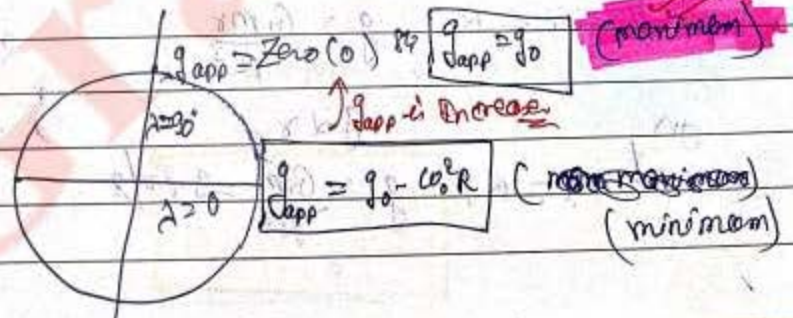 g_app = Zero (0) g_app = g_0 (manimam)
λ=90°
g_app is Increase
g_app = g_0 - ω_0^2 R
λ=0 (minimam)